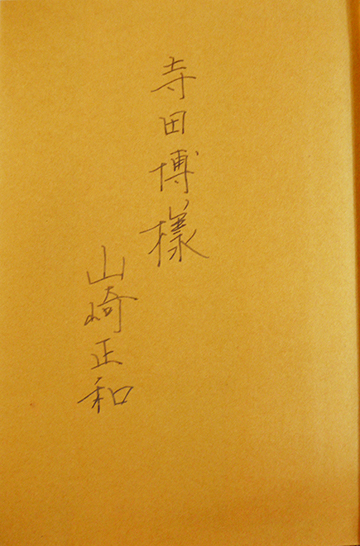 寺田博様
山崎正和